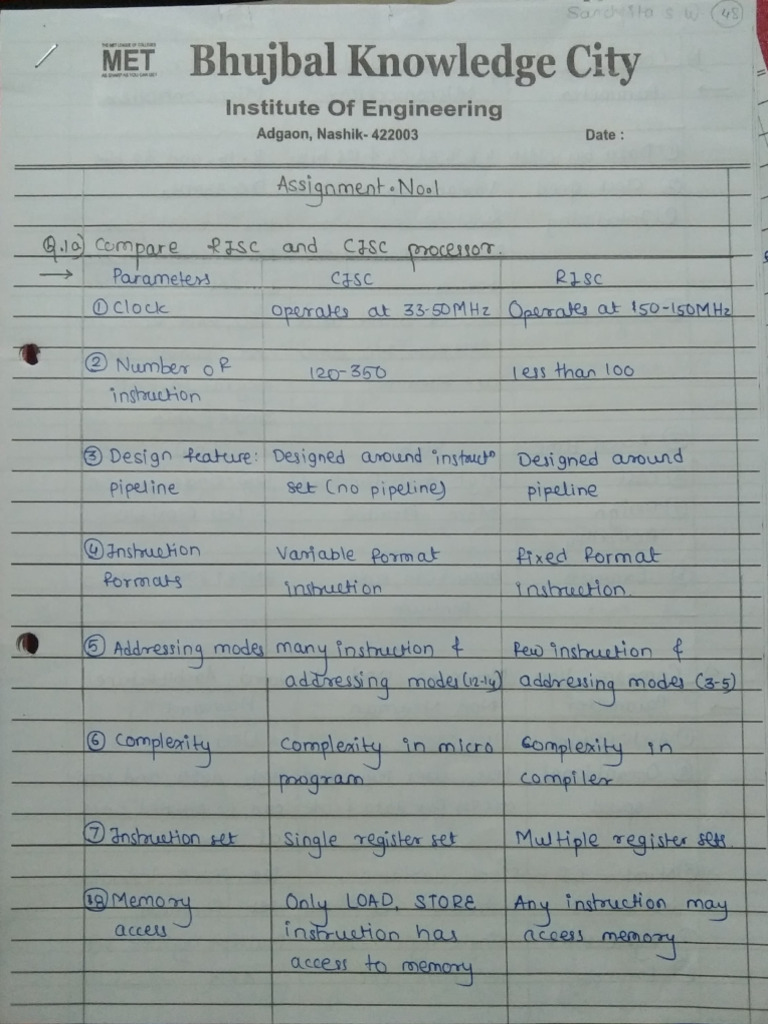 Sanchita S W 48
THE MET LEAGUE OF COLLEGES
MET
AS SHARP AS YOU CAN GET
Bhujbal Knowledge City
Institute Of Engineering
Adgaon, Nashik- 422003 Date :
Assignment. No.1
Q.1a) Compare RISC and CISC processor.
→ Parameters CISC RISC
① Clock Operates at 33-50MHz Operates at 150-150MHz
② Number of 120-350 less than 100
instruction
③ Design feature: Designed around instructⁿ Designed around
pipeline set (no pipeline) pipeline
④ Instruction Variable format fixed format
formats instruction instruction.
⑤ Addressing modes many instruction & few instruction &
addressing modes (12-14) addressing modes (3-5)
⑥ Complexity Complexity in micro Complexity in
program compiler
⑦ Instruction set Single register set Multiple register sets
⑧ Memory Only LOAD, STORE Any instruction may
access instruction has access memory
access to memory